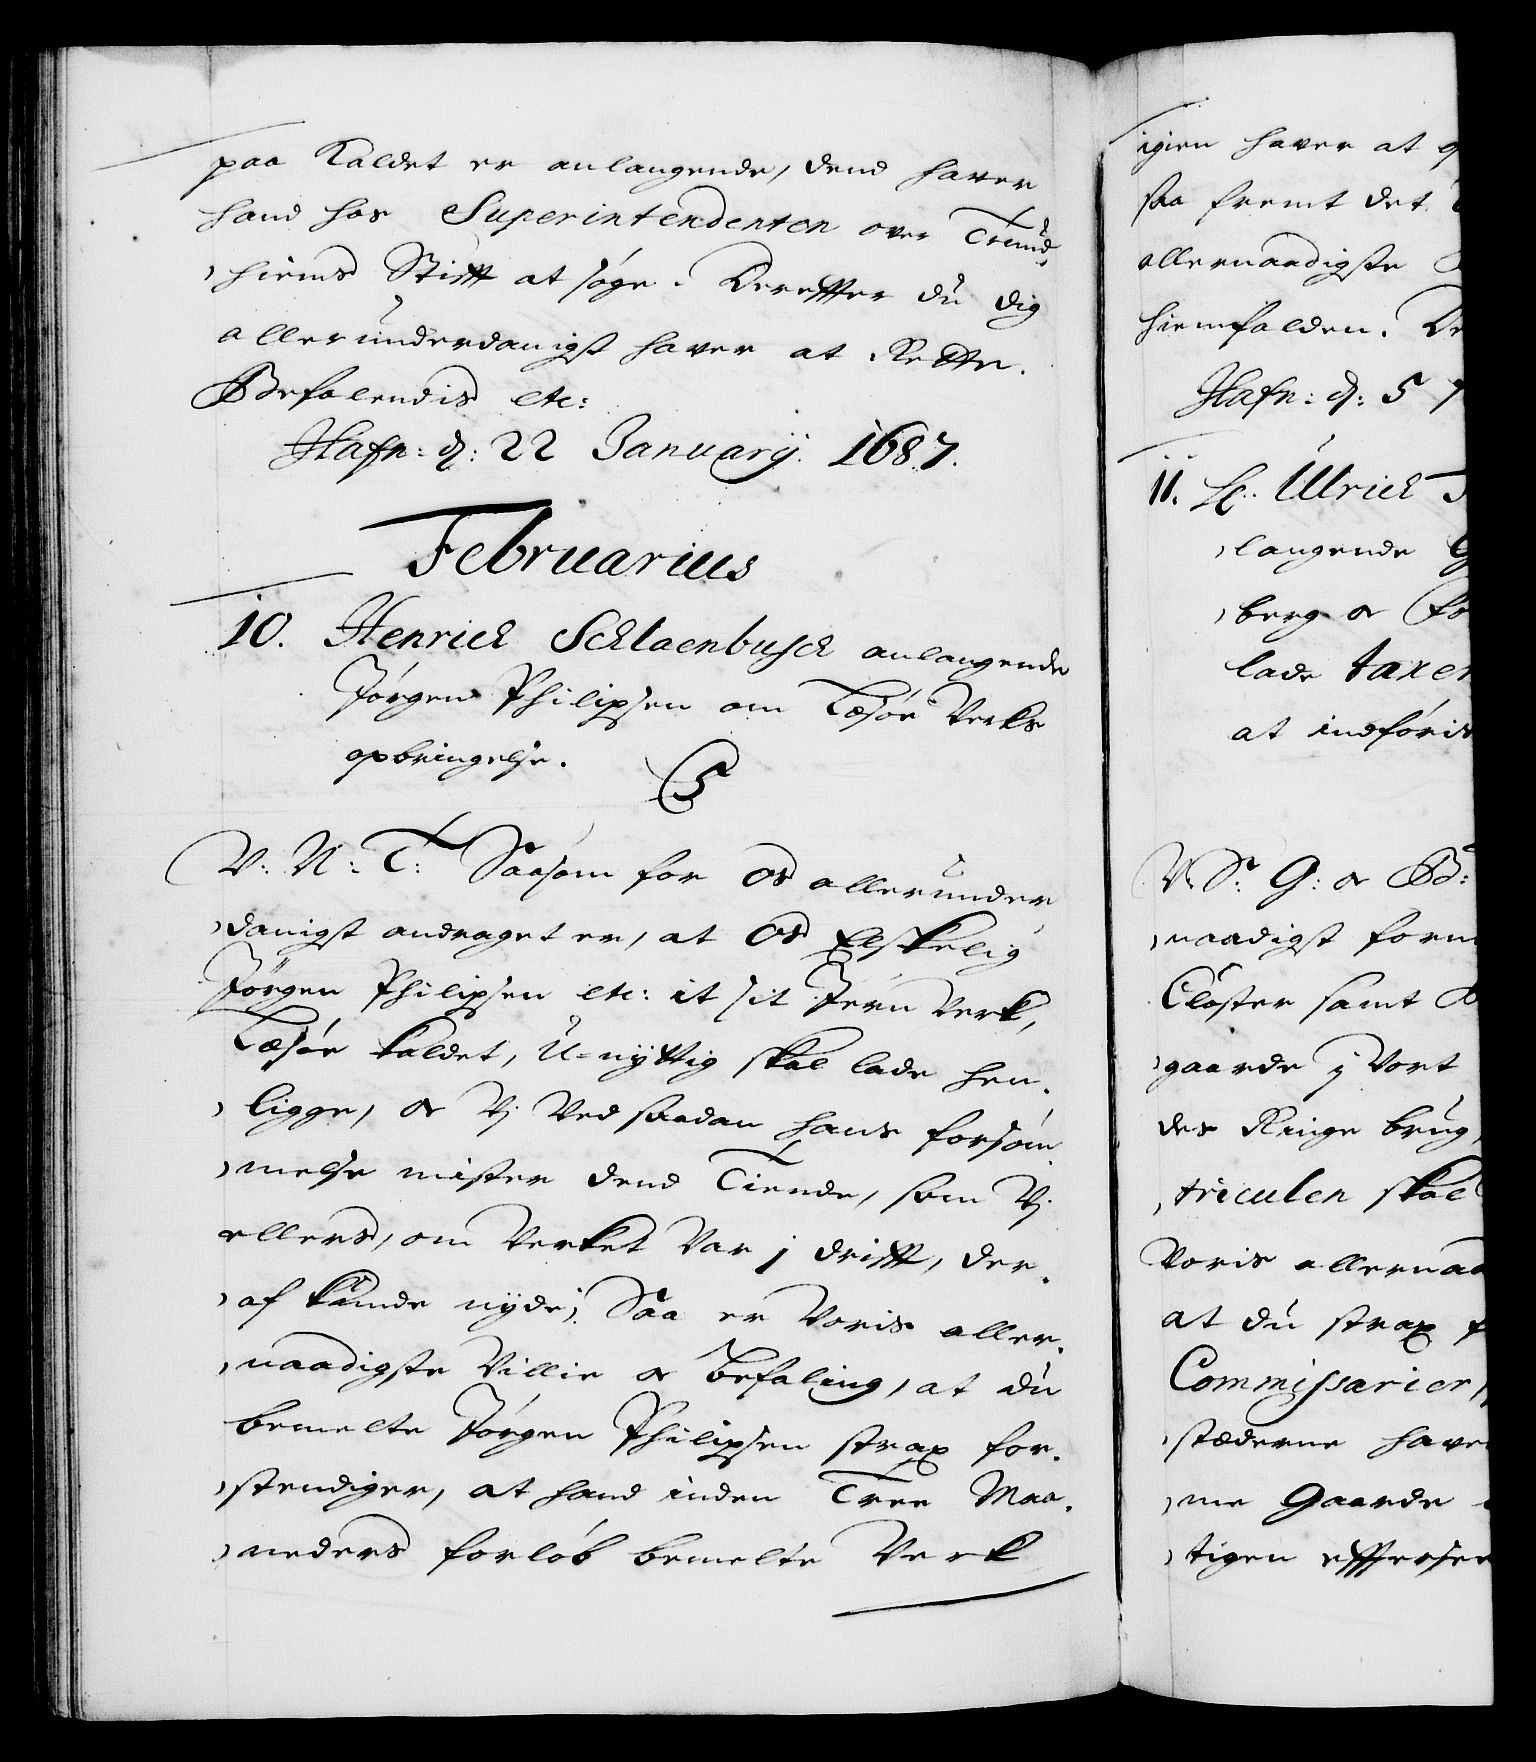 paa Kaldet er anlangende, dend haver
hand hos Superintendenten over Trund-
hiems Stifft at søge. Dereffter du dig
allerunderdanigst haver at Rette.
Befalendis etc:
Hafn: d: 22 Januarij. 1687.
Februarius
10. Henrich Schlaenbusch anlangende
Jørgen Philipsen om Læsøe Verks
opbringelse.
V: N: T: Saasom for Os allerunder
danigst andraget er, at Os Elskelig
Jørgen Philipsen etc: it sit Jern Verk,
Læsøe kaldet, U-nyttig skal lade hen-
ligge, og Vj Ved saadan hans forsøm
melse mister dend Tiende, som Vj
ellers, om Verket Var j drifft, der-
af kunde nyde; Saa er Voris aller-
naadigste Villie og Befaling, at du
bemelte Jørgen Philipsen strax for-
stendiger, at hand inden Tree Maa-
neders forløb bemelte Verk
igien haver at
saa fremt det
allernaadigste
hiemfalden.
Hafn: d: 5
11. Ulrich
langende
berg og
lade taxer
at indføris
V. S: G: og B:
naadigst form
Closter samt
gaarde j Vort
des Ringe brug,
triculen skal
Voris allernaa
at du strax
Commissarier,
stæderne have
me Gaarde
tigen effterser